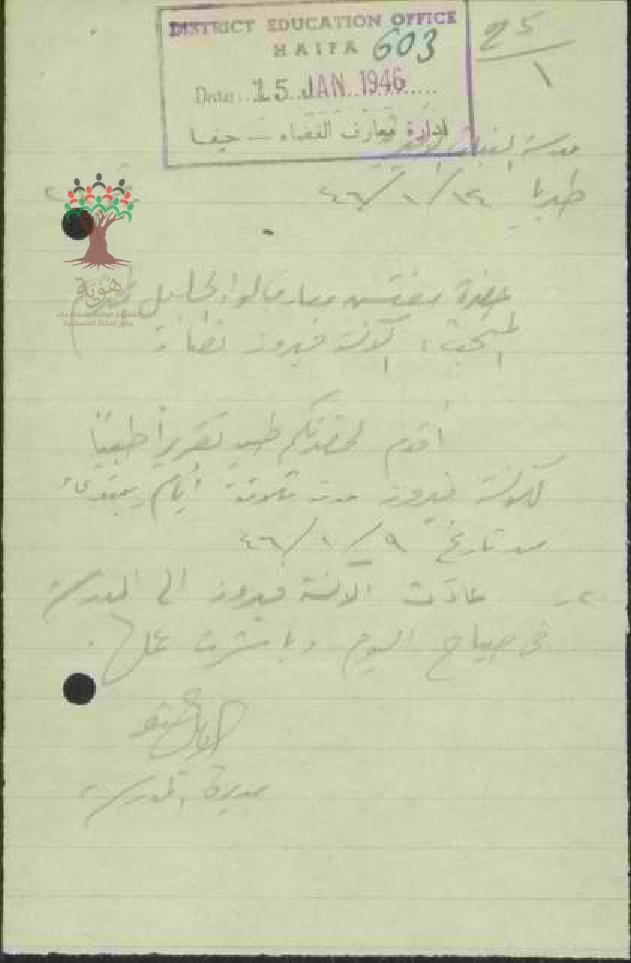 DISTRICT EDUCATION OFFICE
HAIFA 603
Date 15 JAN 1946
ادارة معارف القضاء — حيفا
٢٥/١
مدرسة البنات
طبريا ١٢/١/٤٦
هوية
حضرة مفتش معارف لواء الجليل المحترم
المبحث: الآنسة فيروز
أقدم لحضرتكم طيه تقريراً طبياً
للآنسة فيروز مدة ثلاثة أيام يبتدئ
من تاريخ ٩/١/٤٦
٢- عادت الآنسة فيروز الى المدرسة
في صباح اليوم وباشرت عملها.
مديرة المدرسة